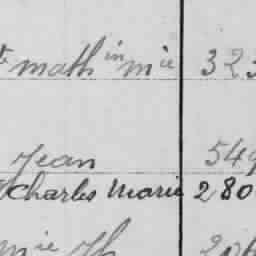 math in mie 323
Jean 549
Charles Marie 280
mie Th 206